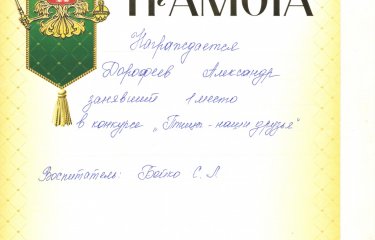 ГРАМОТА
Награждается
Дорофеев Александр
занявший 1 место
в конкурсе „Птицы - наши друзья"
Воспитатель: Бойко С. Л.